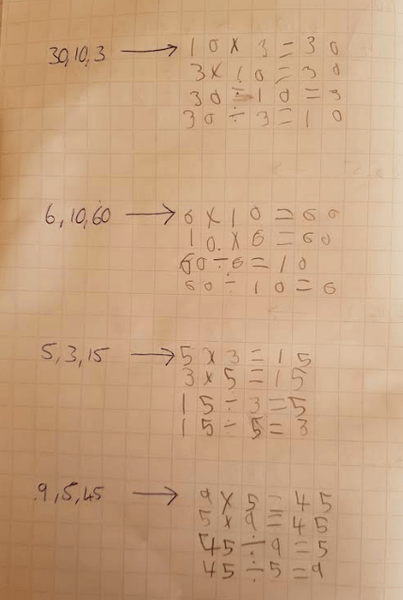 30,10,3 → 10 × 3 = 30
3 × 10 = 30
30 ÷ 10 = 3
30 ÷ 3 = 10
6,10,60 → 6 × 10 = 60
10. × 6 = 60
60 ÷ 6 = 10
60 ÷ 10 = 6
5,3,15 → 5 × 3 = 15
3 × 5 = 15
15 ÷ 3 = 5
15 ÷ 5 = 3
9,5,45 → 9 × 5 = 45
5 × 9 = 45
45 ÷ 9 = 5
45 ÷ 5 = 9